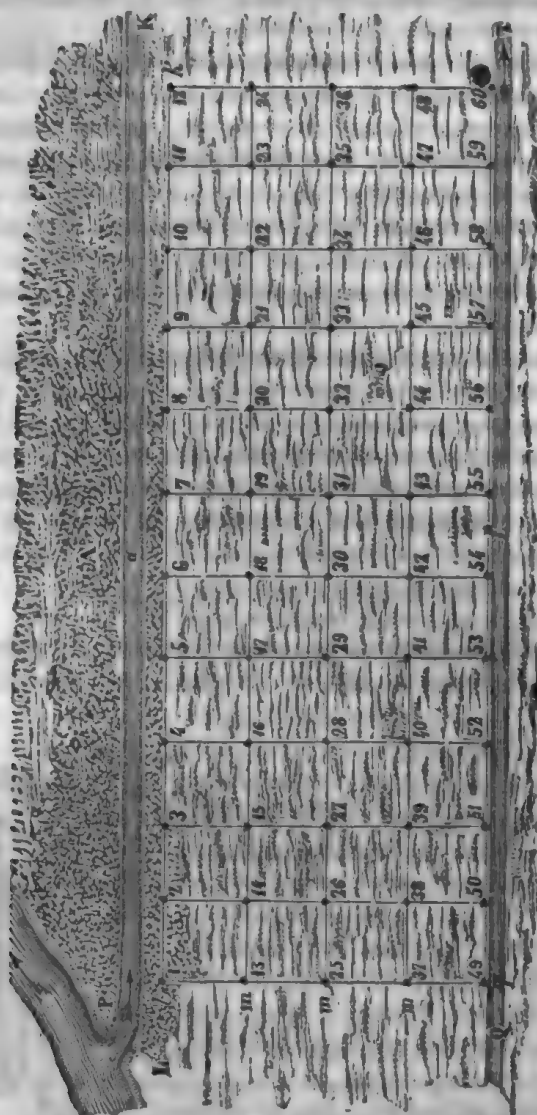 A
P a K
1 2 3 4 5 6 7 8 9 10 11 12
m 13 14 15 16 17 18 19 20 21 22 23 24
m 25 26 27 28 29 30 31 32 33 34 35 36
m 37 38 39 40 41 42 43 44 45 46 47 48
49 50 51 52 53 54 55 56 57 58 59 60
Q